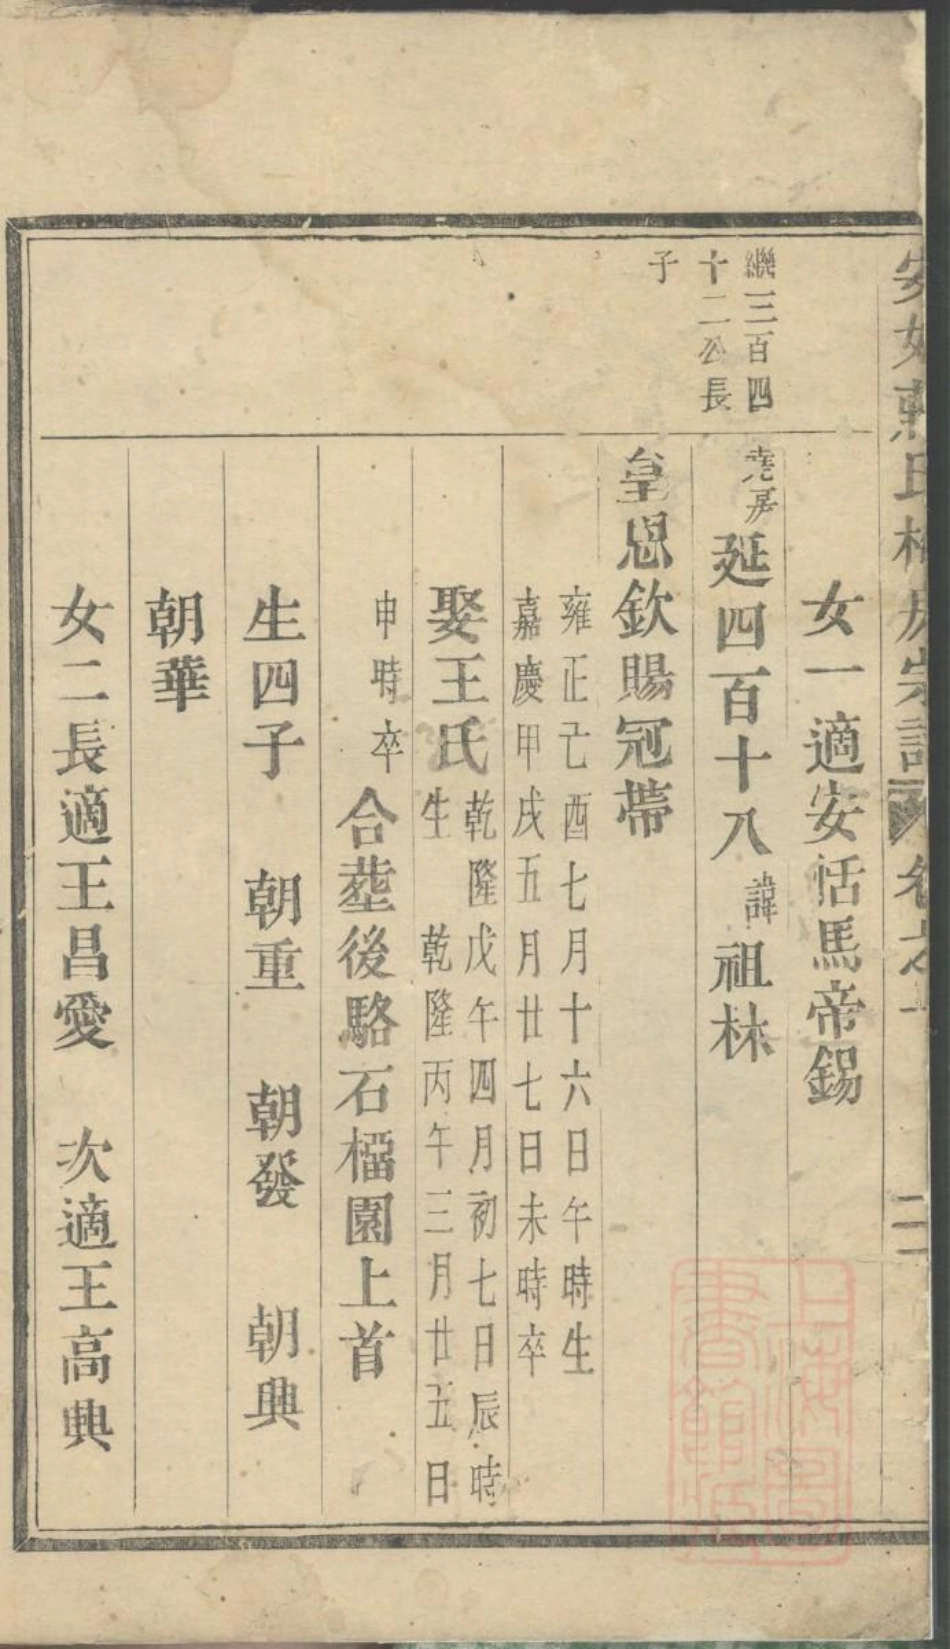 氏
宗譜
卷之一
二
女一適安恬馬帝錫
繼三百四
十二公長
子
堯房
延四百十八
諱
祖林
皇恩欽賜冠帶
雍正己酉七月十六日午時生
嘉慶甲戌五月廿七日未時卒
娶王氏
乾隆戊午四月初七日辰時
生 乾隆丙午三月廿五日
申時卒
合塟後駱石橊園上首
生四子 朝重 朝發 朝興
朝華
女二長適王昌愛 次適王高興